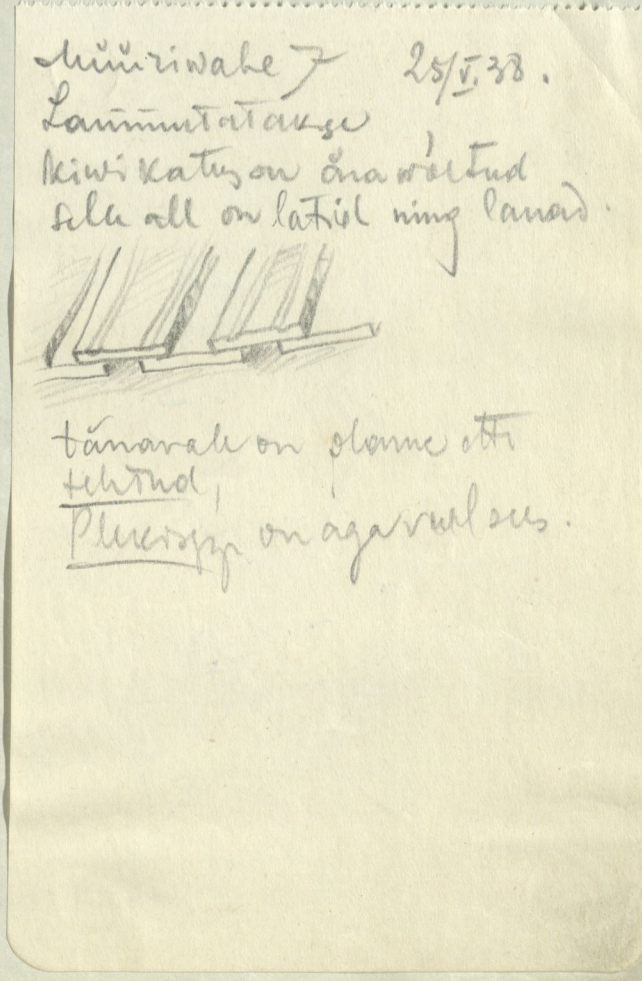 Müüriwahe 7 25/V.38.
Lammutatakse
kiwikatus on ära wõetud
selle all on latid ning lauad.
tänavale on plank ette
tehtud,
Plekisepp on aga veel sees.